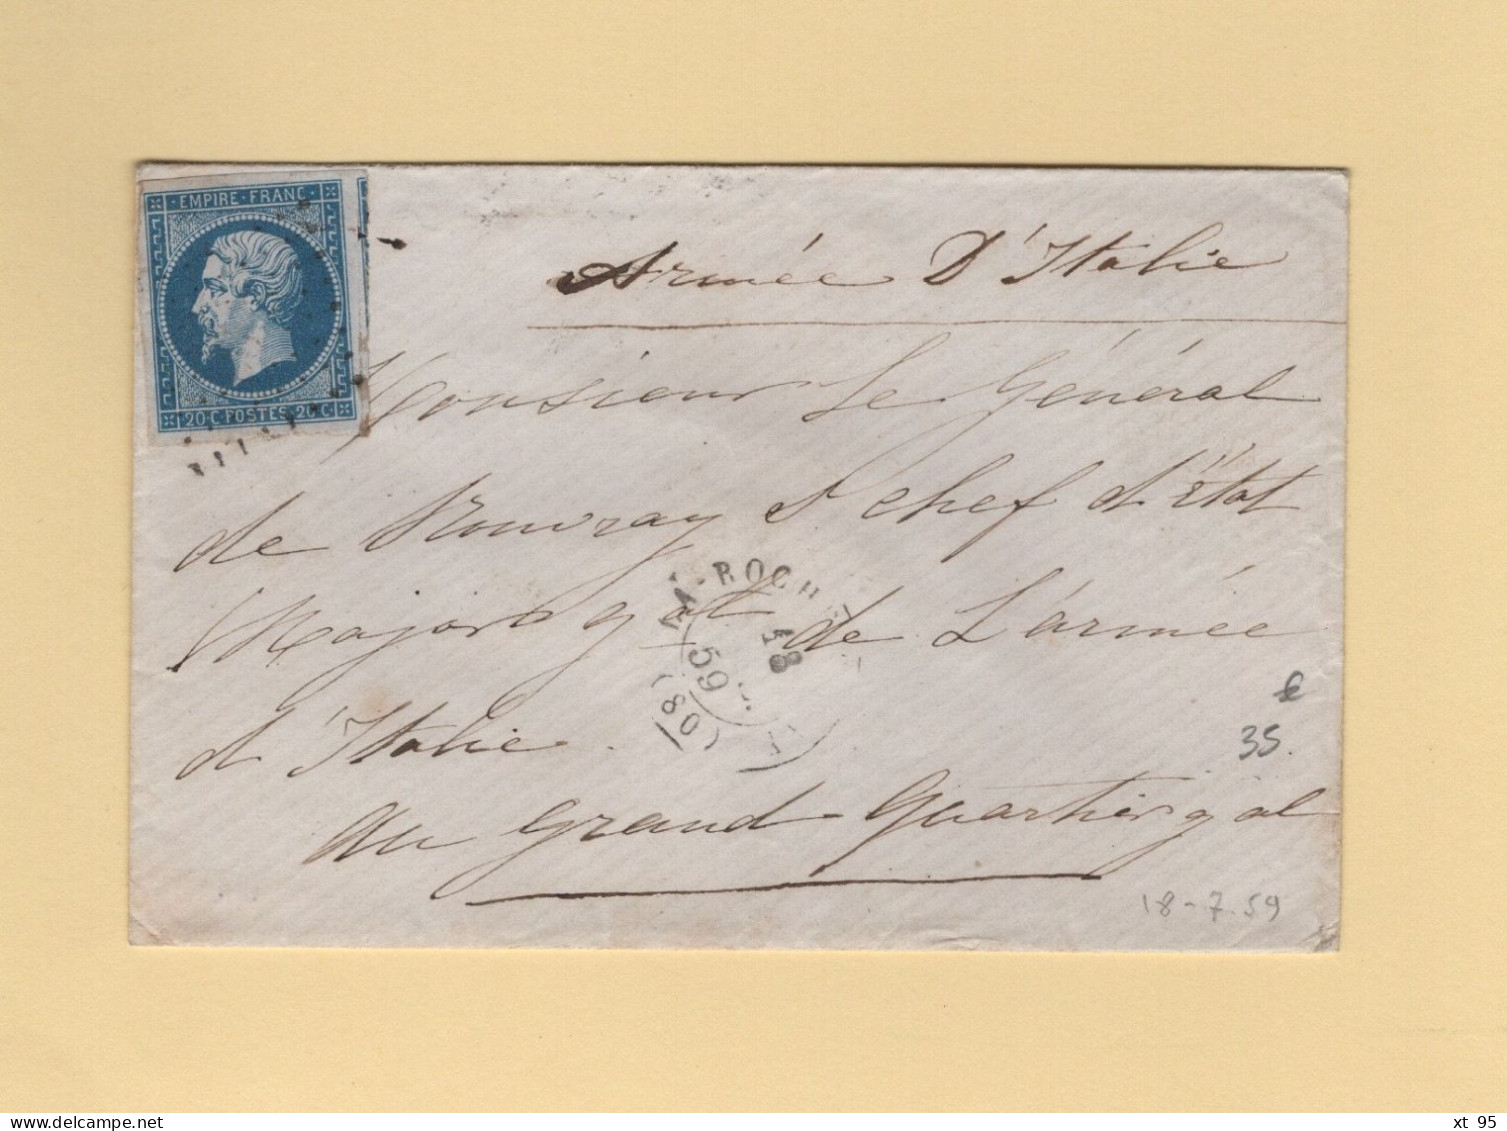 EMPIRE · FRANC ·
20 C POSTES 20 C
Armée D'Italie
Monsieur Le Général
de Rouvray S chef d'état
Major gal de L'armée
d'Italie.
au grand quartier gal
LA-ROCHE
18
59
(80)
35.
18-7.59
xt 95